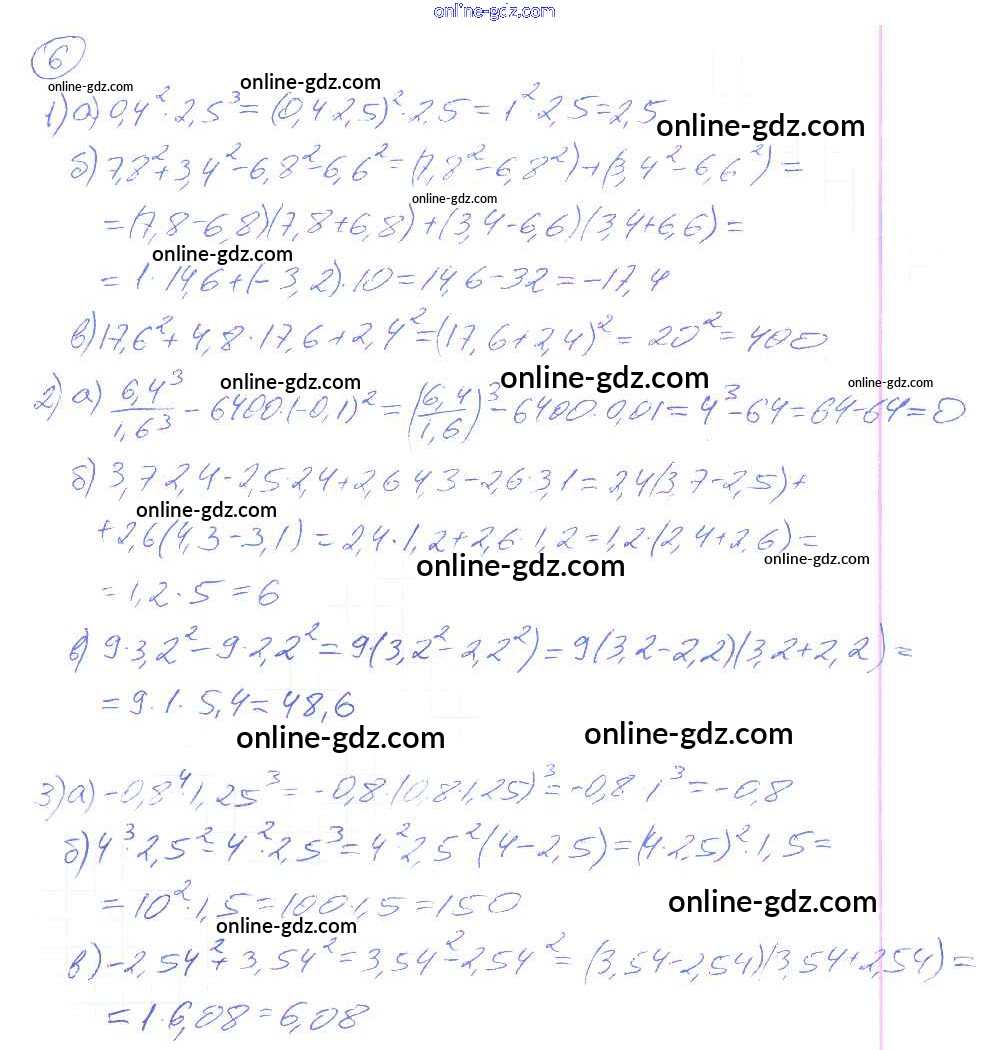 online-gdz.com
6
online-gdz.com
online-gdz.com
1) а) 0,4² · 2,5³ = (0,4 2,5)² · 2,5 = 1² · 2,5 = 2,5
online-gdz.com
б) 7,8² + 3,4² - 6,8² - 6,6² = (7,8² - 6,8²) + (3,4² - 6,6²) =
online-gdz.com
= (7,8 - 6,8)(7,8 + 6,8) + (3,4 - 6,6)(3,4 + 6,6) =
online-gdz.com
= 1 · 14,6 + (-3,2) · 10 = 14,6 - 32 = -17,4
в) 17,6² + 4,8 · 17,6 + 2,4² = (17,6 + 2,4)² = 20² = 400
online-gdz.com
online-gdz.com
online-gdz.com
2) а) 6,4³/1,6³ - 6400 · (-0,1)² = (6,4/1,6)³ - 6400 · 0,01 = 4³ - 64 = 64 - 64 = 0
б) 3,7 2,4 - 2,5 · 2,4 + 2,6 4,3 - 2,6 · 3,1 = 2,4(3,7 - 2,5) +
online-gdz.com
+ 2,6(4,3 - 3,1) = 2,4 · 1,2 + 2,6 · 1,2 = 1,2 · (2,4 + 2,6) =
online-gdz.com
online-gdz.com
= 1,2 · 5 = 6
в) 9 · 3,2² - 9 · 2,2² = 9(3,2² - 2,2²) = 9(3,2 - 2,2)(3,2 + 2,2) =
= 9 · 1 · 5,4 = 48,6
online-gdz.com
online-gdz.com
3) а) -0,8⁴ 1,25³ = -0,8 · (0,8 · 1,25)³ = -0,8 · 1³ = -0,8
б) 4³ · 2,5² - 4² · 2,5³ = 4² · 2,5² (4 - 2,5) = (4 · 2,5)² · 1,5 =
= 10² · 1,5 = 100 · 1,5 = 150
online-gdz.com
online-gdz.com
в) -2,54² + 3,54² = 3,54² - 2,54² = (3,54 - 2,54)(3,54 + 2,54) =
= 1 · 6,08 = 6,08